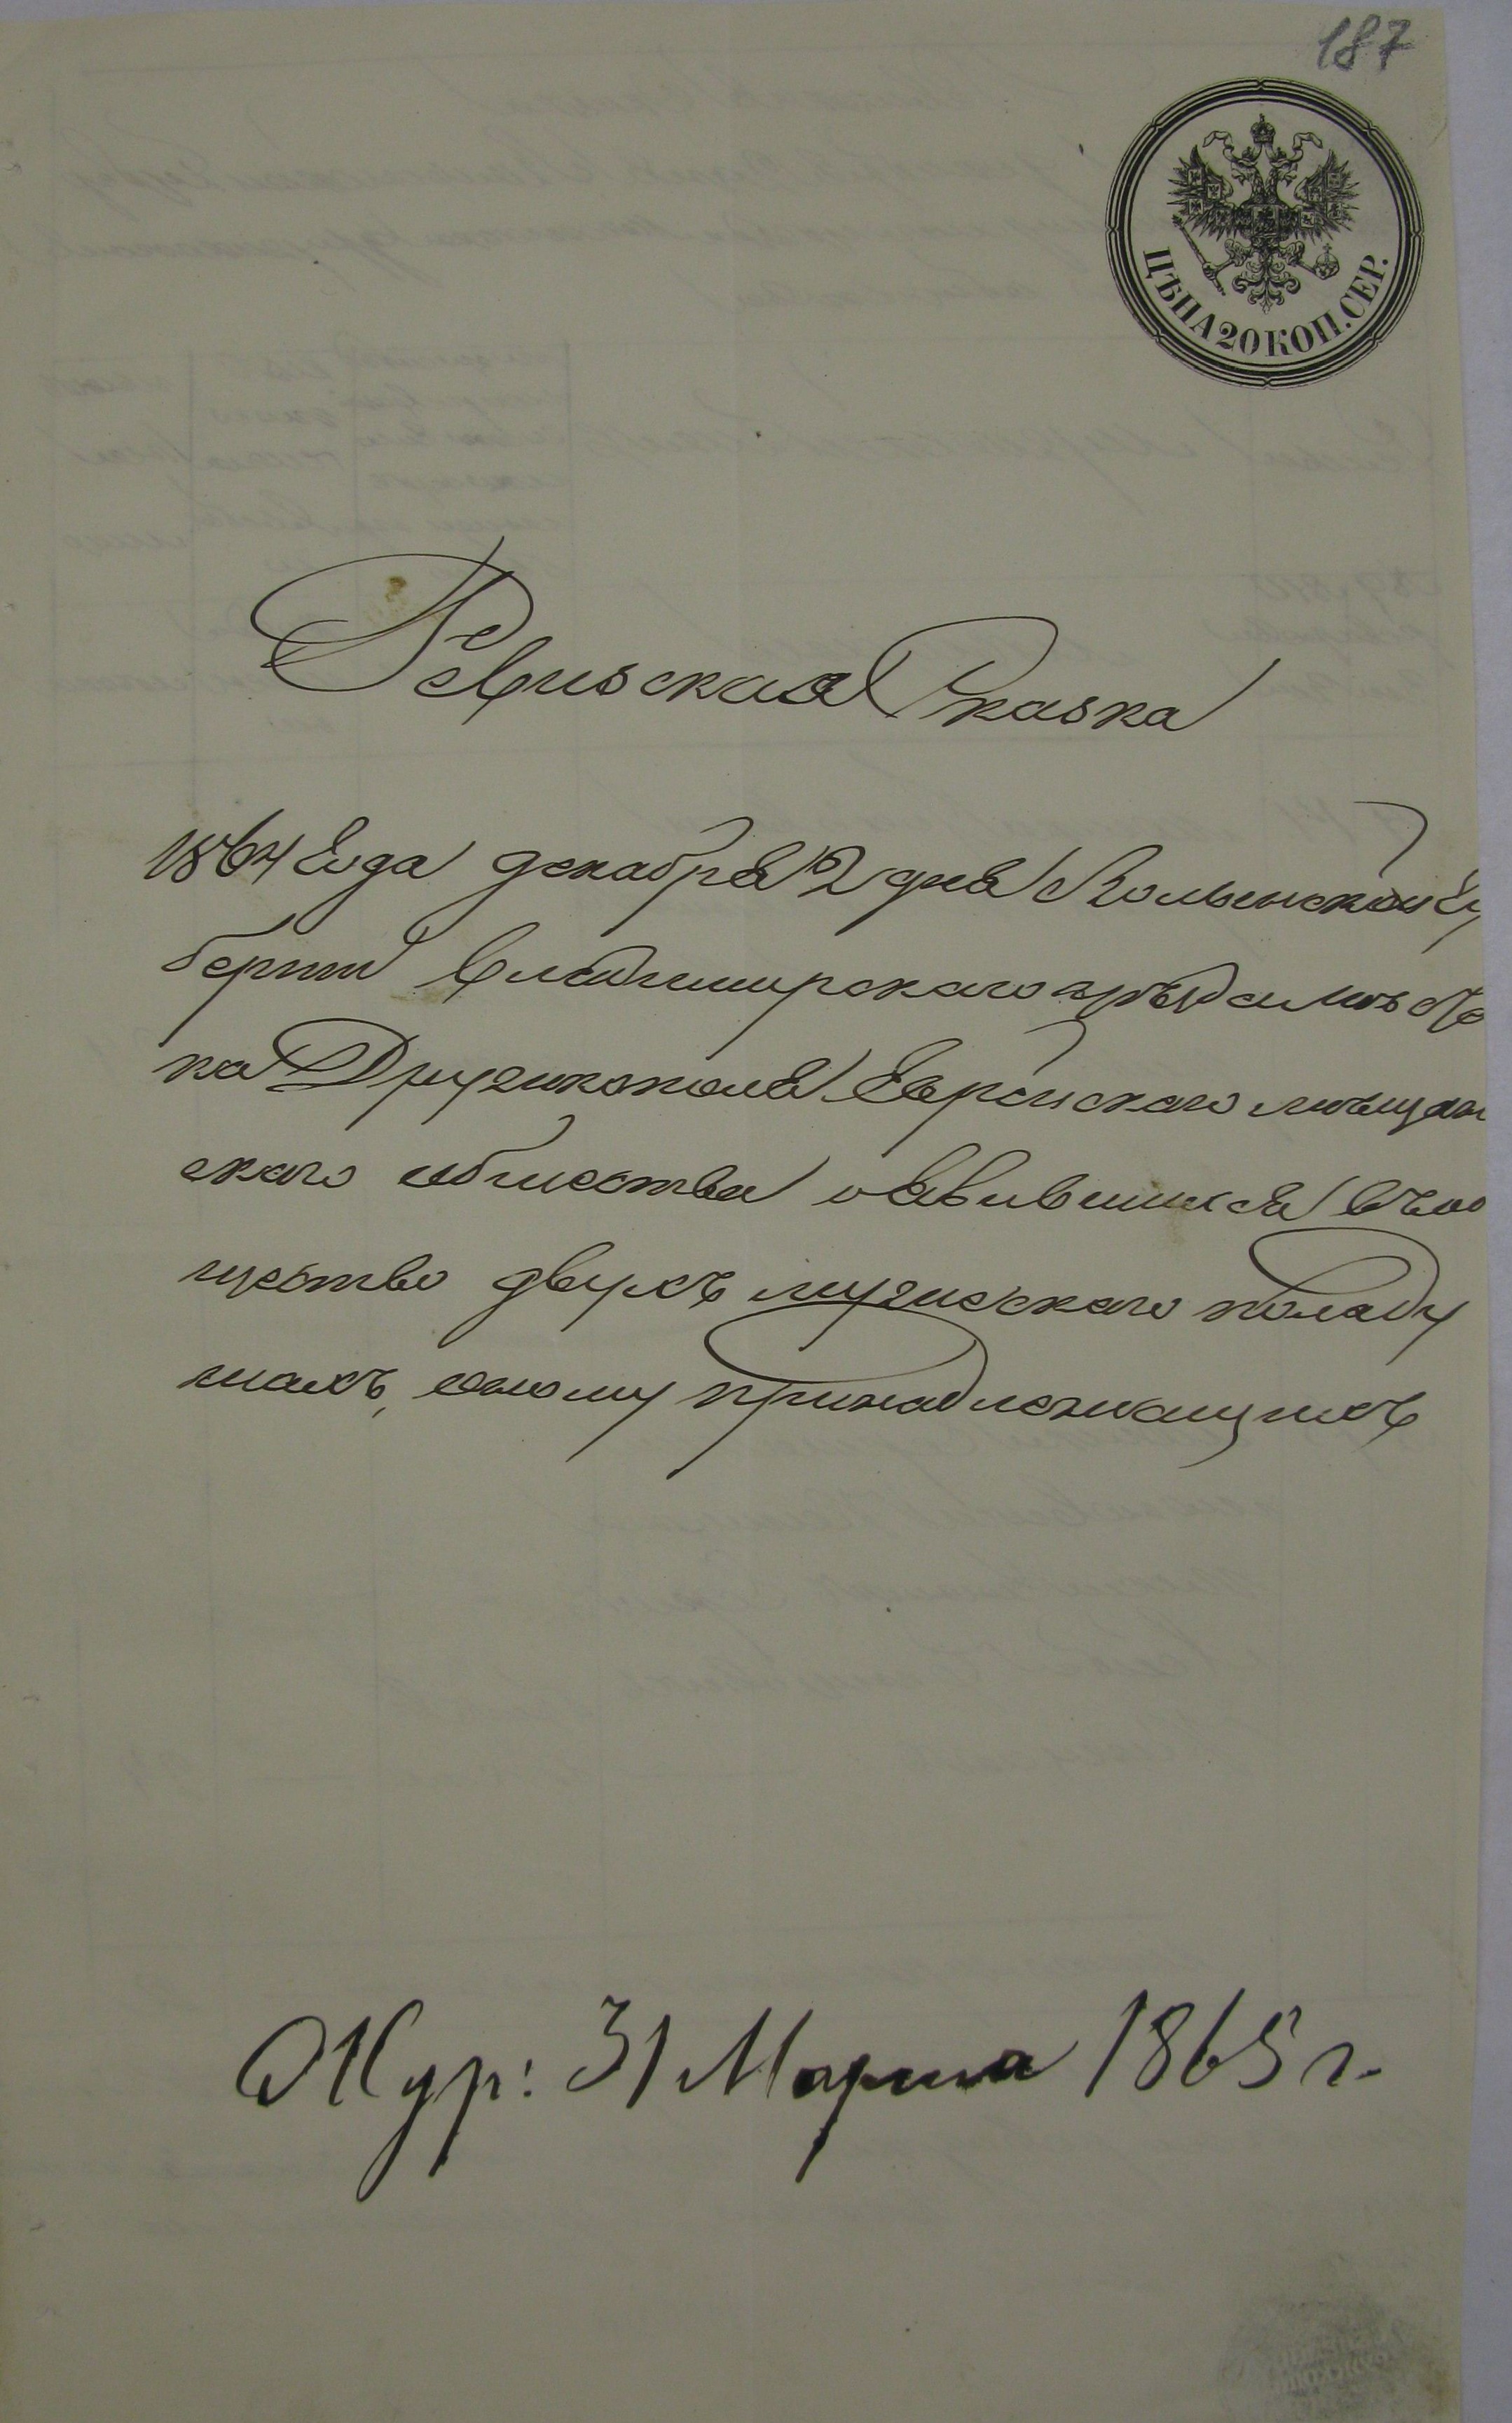 187
ЦѢНА 20 КОП. СЕР.
Ревизская Сказка
1864 Года декабря 2 дня Волынской Гу
бернии Владимирского уѣзда мѣстеч
ка Дружкополя Еврейского мѣщан
ского общества о явившихся въ мо
щество двухъ мужеского пола ду
шахъ, оному принадлежащихъ
Жур: 31 Марта 1865 г.